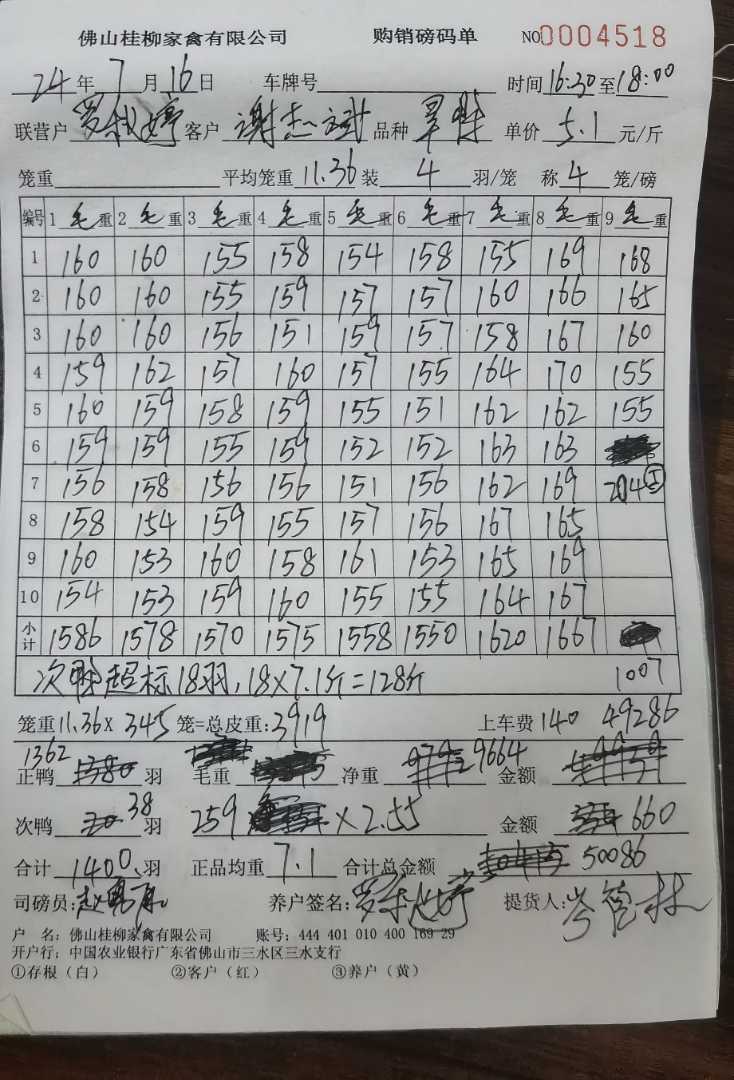 佛山桂柳家禽有限公司 购销磅码单 NO 0004518
24年7月16日 车牌号 时间16:30至18:00
联营户 客户 谢杰斌 品种 单价 5.1 元/斤
笼重 平均笼重 11.36 装 4 羽/笼 称 4 笼/磅
编号 1 毛重 2 毛重 3 毛重 4 毛重 5 毛重 6 毛重 7 毛重 8 毛重 9 毛重
1 160 160 155 158 154 158 155 169 168
2 160 160 155 159 157 157 160 166 165
3 160 160 156 151 159 157 158 167 160
4 159 162 157 160 157 155 164 170 155
5 160 159 158 159 155 151 162 162 155
6 159 159 155 159 152 152 163 163
7 156 158 156 156 151 156 162 169 204
8 158 154 159 155 157 156 167 165
9 160 153 160 158 161 153 165 169
10 154 153 159 160 155 155 164 167
小计 1586 1578 1570 1575 1558 1550 1620 1667
次鸭超标18羽,18×7.1斤=128斤 1007
笼重11.36× 345 笼=总皮重:3919 上车费 140 49286
正鸭 1362 羽 毛重 净重 9664 金额
次鸭 38 羽 259 ×2.55 金额 660
合计 1400 羽 正品均重 7.1 合计总金额 50086
司磅员: 养户签名: 提货人:
户 名:佛山桂柳家禽有限公司 账号:444 401 010 400 169 29
开户行:中国农业银行广东省佛山市三水区三水支行
①存根(白) ②客户(红) ③养户(黄)